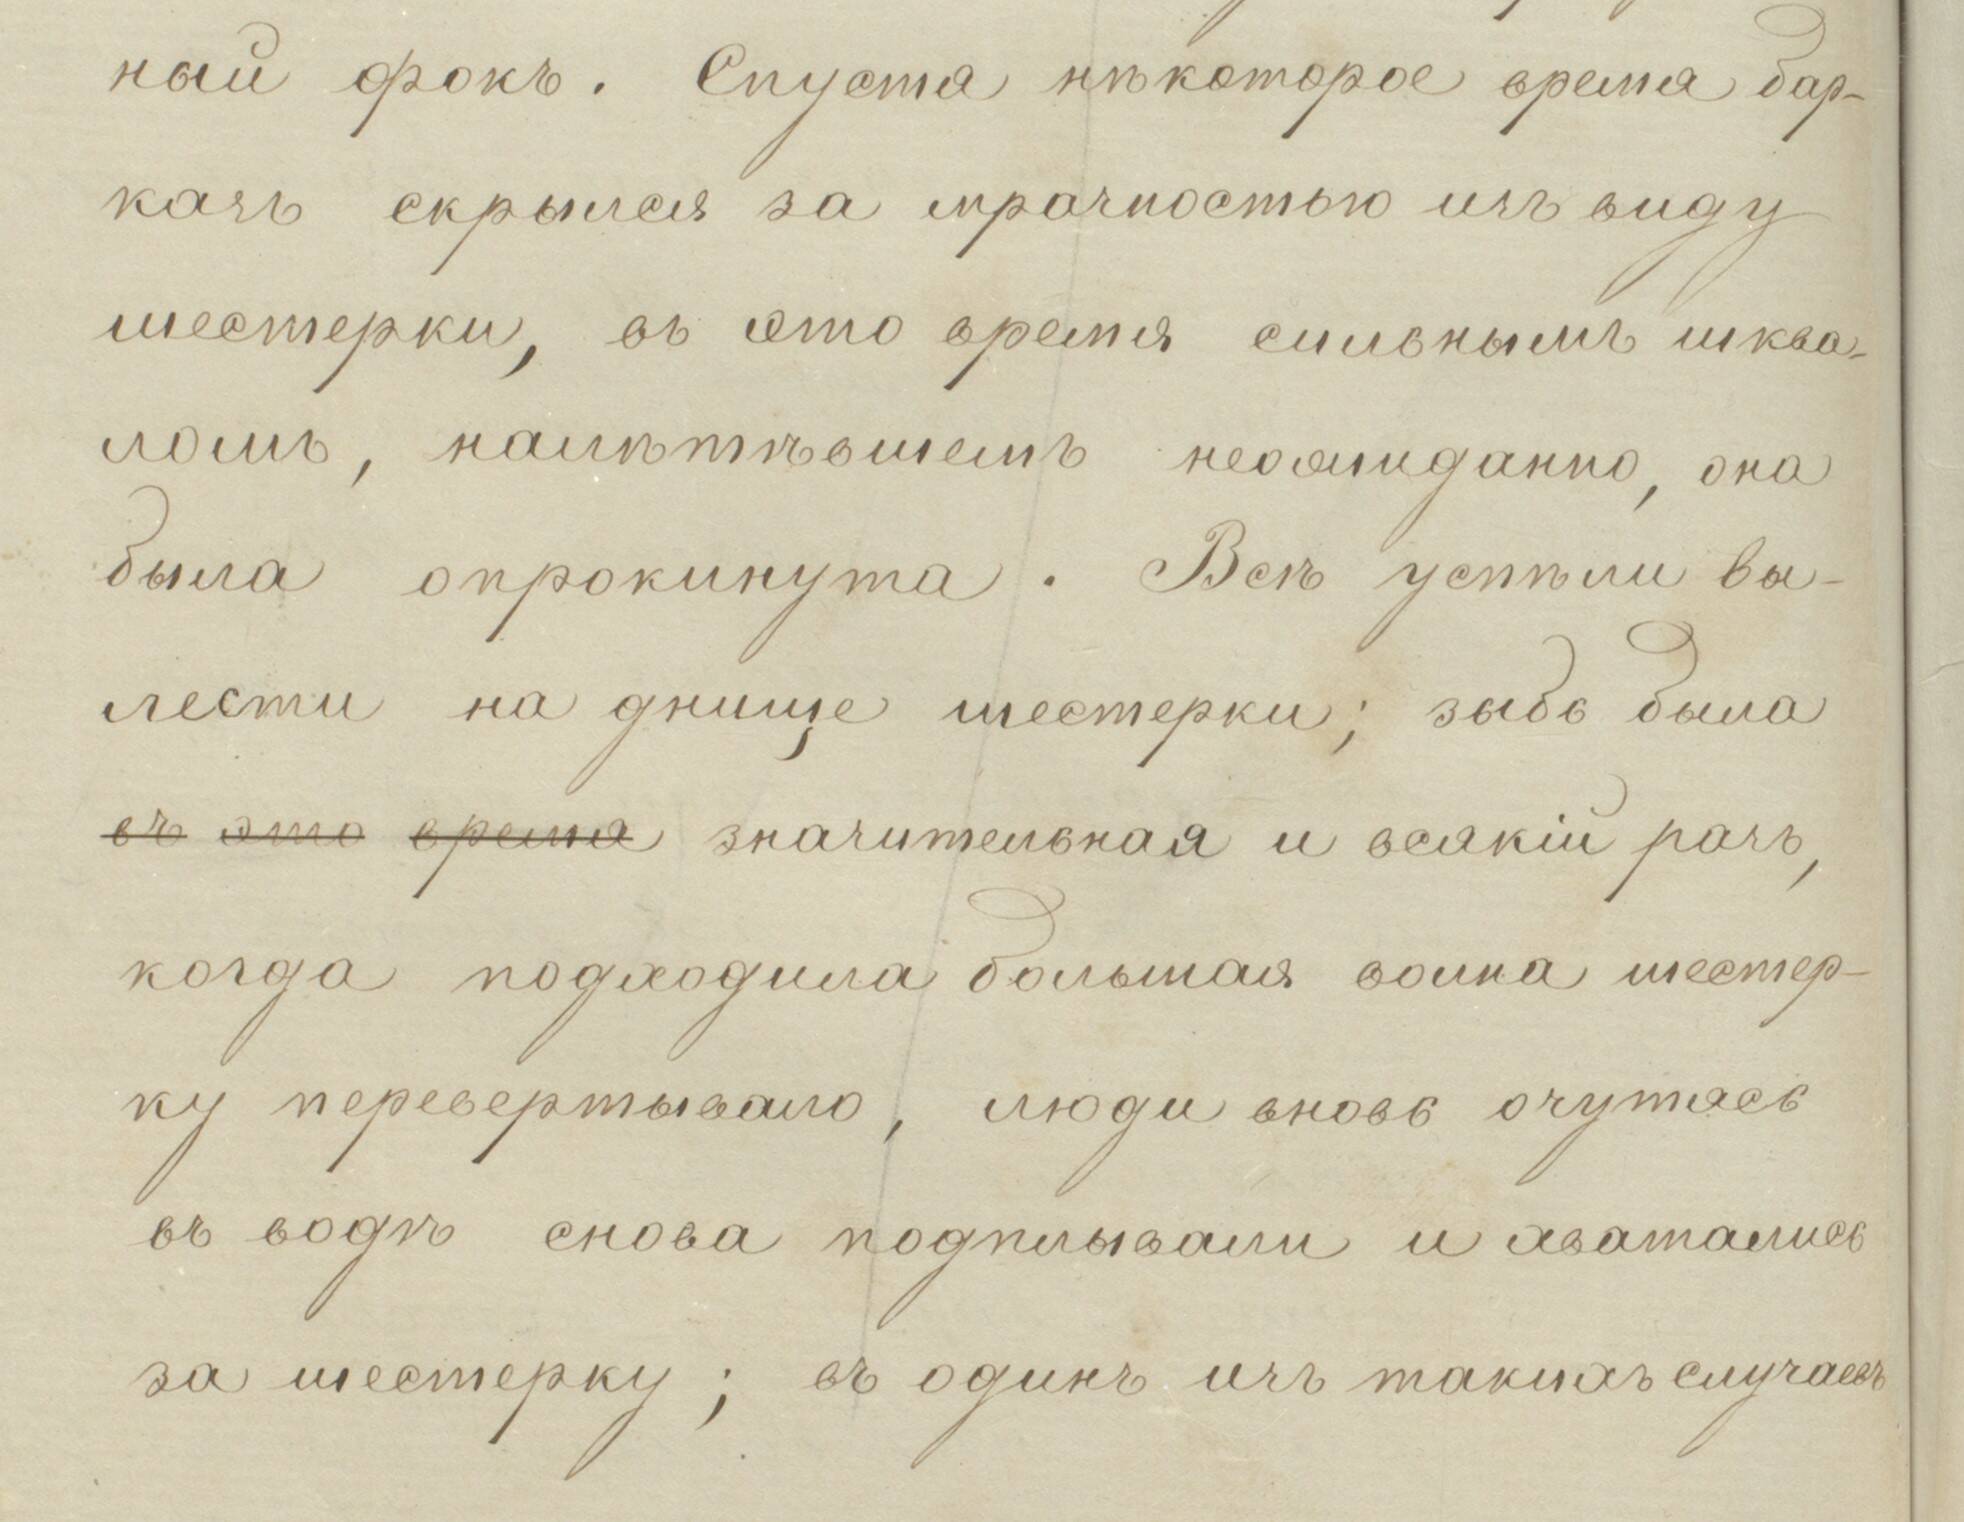 ный фокъ. Спустя нѣкоторое время бар-
казъ скрылся за мрачностью изъ виду
шестерки, въ это время сильнымъ шква-
ломъ, налѣтѣвшемъ неожиданно, она
была опрокинута. Всѣ успѣли вы-
лести на днище шестерки; зыбь была
въ это время значительная и всякій разъ,
когда подходила большая волна шестер-
ку перевертывало, люди вновь очутясь
въ водѣ снова подплывали и хватались
за шестерку; въ одинъ изъ такихъ случаевъ